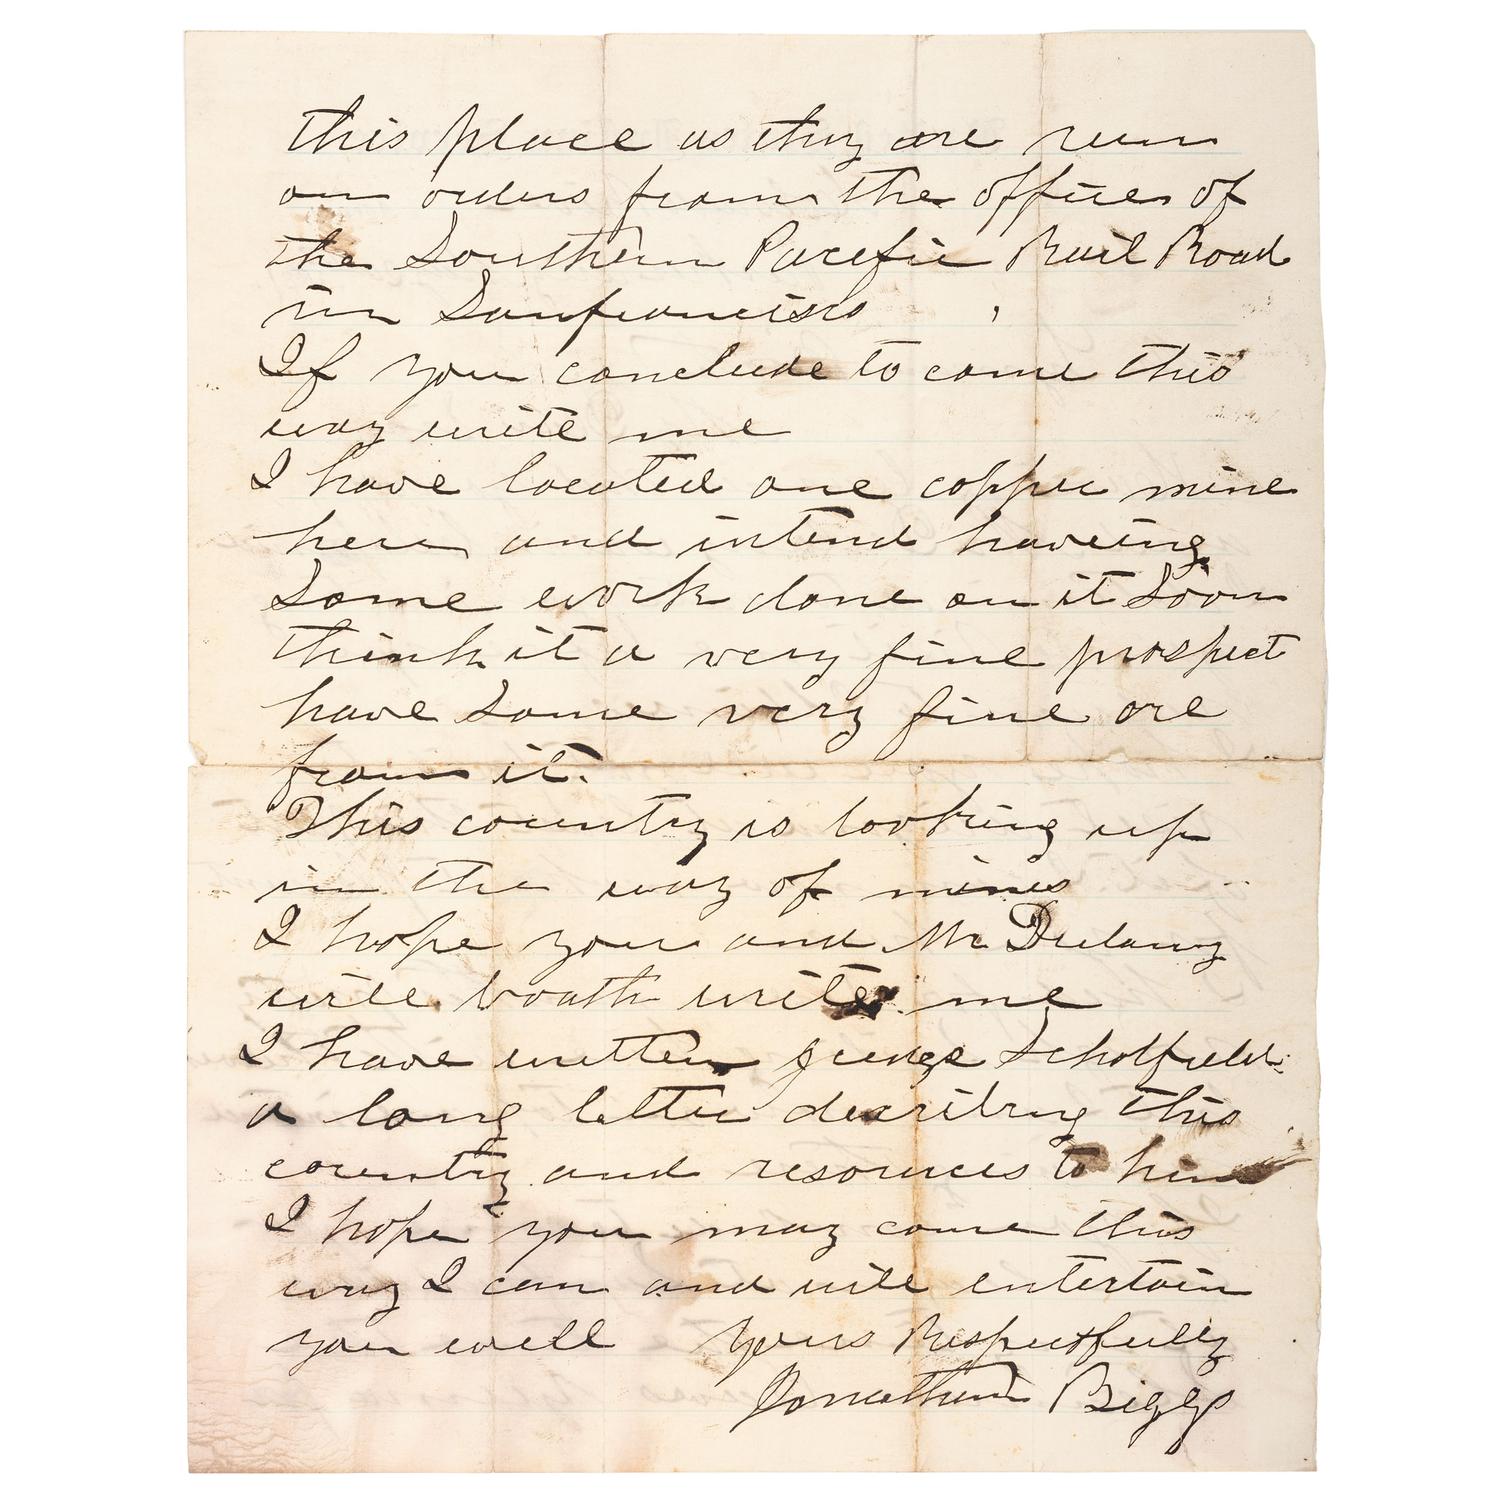 this place as they are run
on orders from the offices of
the Southern Pacific Rail Road
in Sanfrancisco
If you conclude to come this
way write me
I have located one copper mine
here and intend haveing
Some work done on it Soon
think it a very fine prospect
have some very fine ore
from it.
This country is looking up
in the way of mines
I hope you and Mr Dulany
will boath write me
I have written judge Scholfield
a long letter describing this
country and resources to him
I hope you may come this
way I can and will entertain
you well Yours Respectfully
Jonathan Biggs